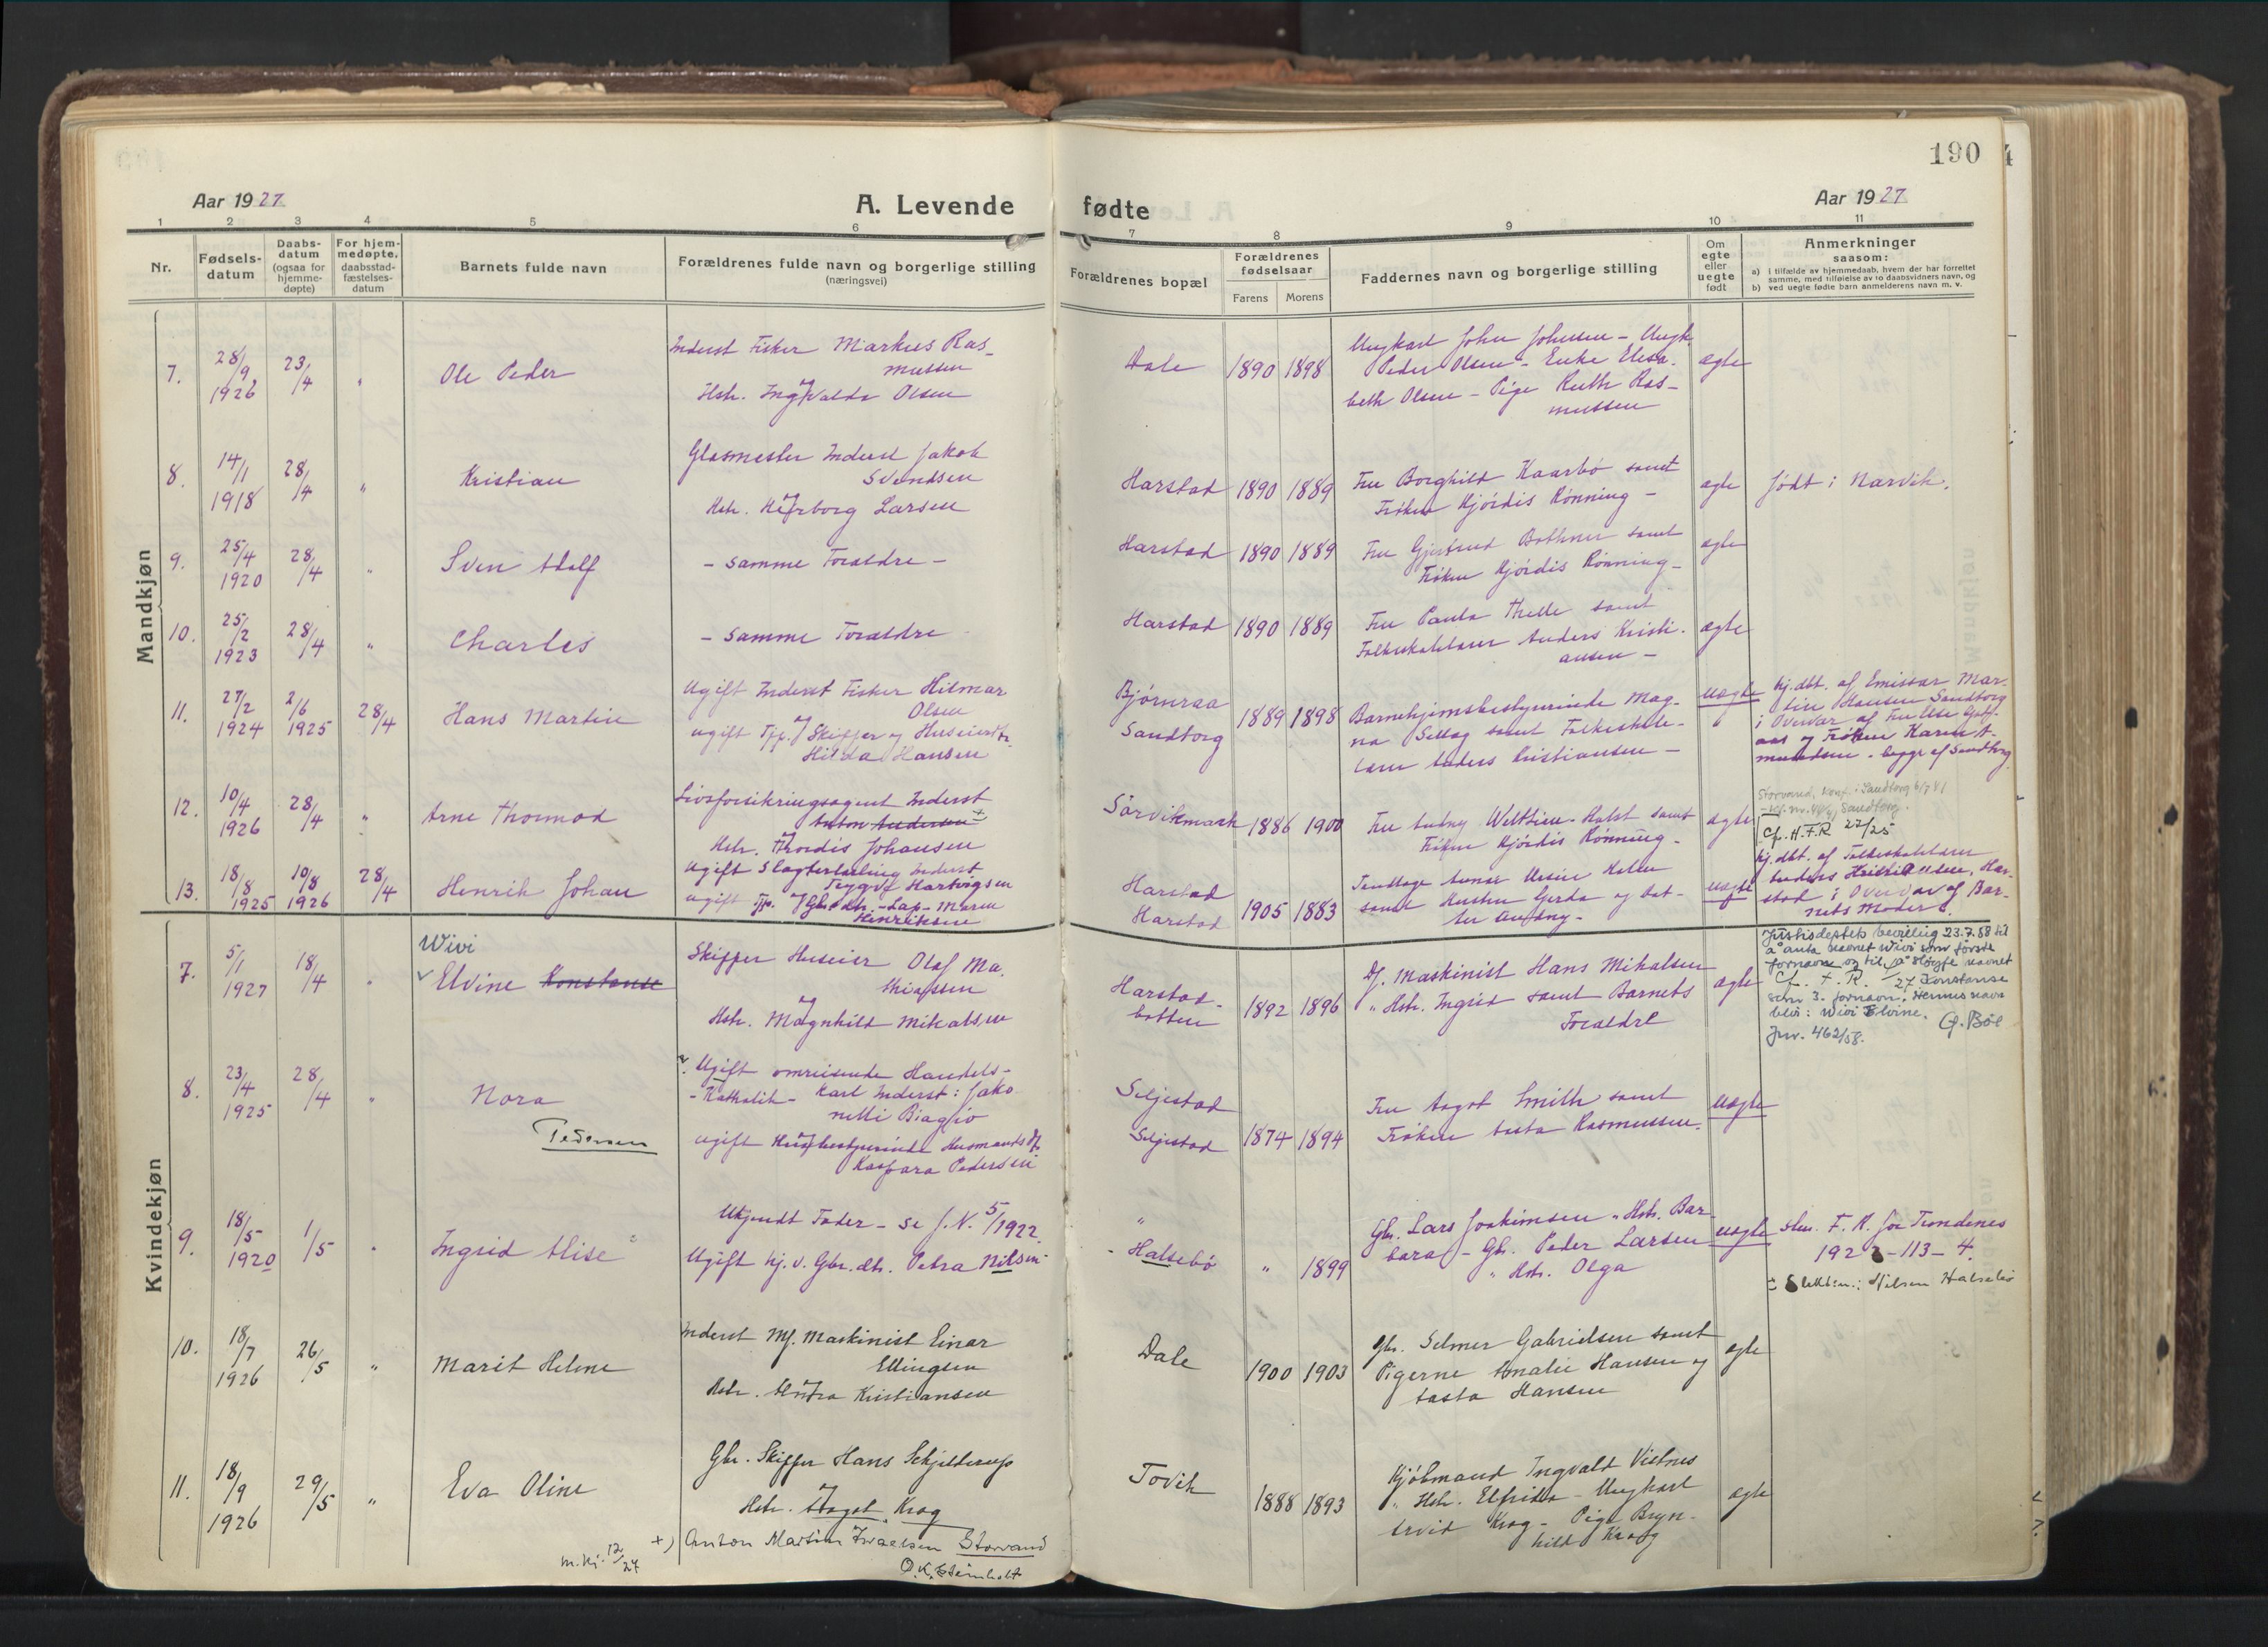 190
Aar 1927
A. Levende
fødte
Aar 1927
1 2 3 4 5 6 7 8 9 10 11
Nr.
Fødsels-
datum
Daabs-
datum
(ogsaa for
hjemme-
døpte)
For hjem-
medøpte,
daabsstad-
fæstelses-
datum
Barnets fulde navn
Forældrenes fulde navn og borgerlige stilling
(næringsvei)
Forældrenes bopæl
Forældrenes
fødselsaar
Farens Morens
Faddernes navn og borgerlige stilling
Om
egte
eller
uegte
født
Anmerkninger
saasom:
a) i tilfælde av hjemmedaab, hvem der har forrettet
samme, med tilføielse av to daabsvidners navn, og
b) ved uegte fødte barn anmelderens navn m. v.
Mandkjøn
7.
28/9
1926
23/4
"
Ole Peder
Inderst Fisker Markus Ras-
mussen
og
Hstr. Ingvalda Olsen
Dale
1890 1898
Ungkarl John Johnsen - Ungk.
Peder Olsen - Enke Elesa-
beth Olsen - Pige Ruth Ras-
mussen
ægte
8.
14/1
1918
28/4
"
Kristian
Glasmester Inderst Jakob
Svendsen
og
Hstr. Herborg Larsen
Harstad
1890 1889
Fru Borghild Kaarbø samt
Frøken Hjørdis Rønning -
ægte
født i Narvik.
9.
25/4
1920
28/4
"
Sven Adolf
- samme Forældre -
Harstad
1890 1889
Fru Gjertrud Bothner samt
Frøken Hjørdis Rønning -
ægte
10.
25/2
1923
28/4
"
Charles
- samme Forældre -
Harstad
1890 1889
Fru Paula Thelle samt
Folkeskolelærer Anders Kristi-
ansen -
ægte
11.
27/2
1924
2/6
1925
28/4
Hans Martin
Ugift Inderst Fisker Hilmar
Olsen
og
ugift Tjp. Skipper og Huseierdtr.
Hilda Hansen
Bjørnraa
Sandtorg
1889 1898
Barnehjemsbestyrerinde Mag-
na Sellæg samt Folkeskole-
lærer Anders Kristiansen -
uægte
"
hj.dbt. af Emissær Mar-
tin Hansen Sandtorg
i Overvær af Fru Else
og Frøken Karen A-
mundsen - begge af Sandtorg
12.
10/4
1926
28/4
"
Arne Thormod
Livsforsikringsagent Inderst
Anton Andersen +
og
Hstr. Thordis Johansen
Sørvikmark
1886 1900
Fru Andny Welttien-Holst samt
Frøken Hjørdis Rønning -
ægte
Storvand, Konf. i Sandtorg
Sandtorg.
Cf. H.F.R. 27/25
13.
18/8
1925
10/8
1926
28/4
Henrik Johan
Ugift Slagterlærling Inderst
Trygve Hartvigsen
og
ugift Tjp. Gbr.dtr. - Lap - Maren
Henriksen
Harstad
Harstad
1905 1883
Tandlæge
samt Hustru Gerda og Dat-
ter Audny -
uægte
hj.dbt. af Folkeskolelærer
Anders Kristiansen, Har-
stad i Overvær af Bar-
nets Moder.
Kvindekjøn
7.
5/1
1927
18/4
"
Wivi
Elvine Konstanse
Skipper Huseier Olaf Ma-
thiassen
og
Hstr. Magnhild Mikalsen
Harstad-
botten
1892 1896
Df. Maskinist Hans Mikalsen
" Hstr. Ingrid samt Barnets
Forældre
ægte
Justisdeptets bevilling 23.7.58 til
å anta navnet Wivi som første
fornavn og til å sløyfe navnet
Cf. F. R. /27 Konstanse
som 3. fornavn. Hennes navn
blir: Wivi Elvine. G. Böe
Jnr. 462/58.
8.
23/4
1925
28/4
"
Nora
Pedersen
Ugift omreisende Handels-
- Katholik - karl Inderst: Jako-
netti Biagio
og
ugift Husbestyrerinde Husmandsdtr.
Kaspara Pedersen
Seljestad
Seljestad
1874 1894
Fru Aagot Smith samt
Frøken Aasta Rasmussen.
uægte
9.
18/5
1920
1/5
"
Ingrid Alise
Ukjendt Fader - se J.N. 5/1922.
Ugift hj.v. Gbr.dtr. Petra Nilsen
"
Halsebø
" 1899
Gbr. Lars Joakimsen " Hstr. Bar-
bara - Gbr. Peder Larsen
" Hstr. Olga
uægte
F. R. for Trondenes
1922-113-4.
Slektsn.: Nilsen Halsebø
10.
18/7
1926
26/5
"
Marit Helene
Inderst Mf. Maskinist Einar
Ellingsen
og
Hstr. Kristiansen
Dale
1900 1903
Gbr. Selmer Gabrielsen samt
Pigerne Amalie Hansen og
Aasta Hansen
ægte
11.
18/9
1926
29/5
"
Eva Oline
Gbr. Skipper Hans Schjelderup
og
Hstr. Aagot Krog
Tovik
1888 1893
Kjøbmand Ingvald Vistnes
" Hstr. Elfrida - Ungkarl
Arvid Krog - Pige Bryn-
hild Krog
ægte
+) Anton Martin Israelsen Storvand
m.ki. 12/27
O.K. Steinholt